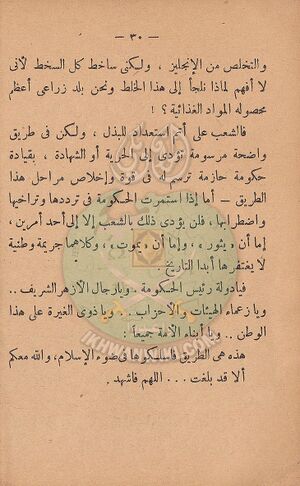 — ٣٠ —
والتخلص من الإنجليز ، ولكنى ساخط كل السخط لأنى
لا أفهم لماذا نلجأ إلى هذا الخلط ونحن بلد زراعى أعظم
محصوله المواد الغذائية ؟ !
فالشعب على أتم استعداد للبذل ، ولكن فى طريق
واضحة مرسومة تؤدى إلى الحرية أو الشهادة ، بقيادة
حكومة حازمة ترسم له فى قوة وإخلاص مراحل هذا
الطريق — أما إذا استمرت الحكومة فى ترددها وتراخيها
واضطرابها ، فلن يؤدى ذلك بالشعب إلا إلى أحد أمرين ،
إما أن « يثور » ، وإما أن « يموت » ، وكلاهما جريمة وطنية
لا يغتفرها أبدا التاريخ .
فيادولة رئيس الحكومة . ويارجال الأزهر الشريف ..
ويا زعماء الهيئات والأحزاب .. ويا ذوى الغيرة على هذا
الوطن .. ويا أبناء الأمة جميعا :
هذه هى الطريق فاسلكوها فى ضوء الإسلام ، والله معكم
ألا قد بلغت ... اللهم فاشهد .